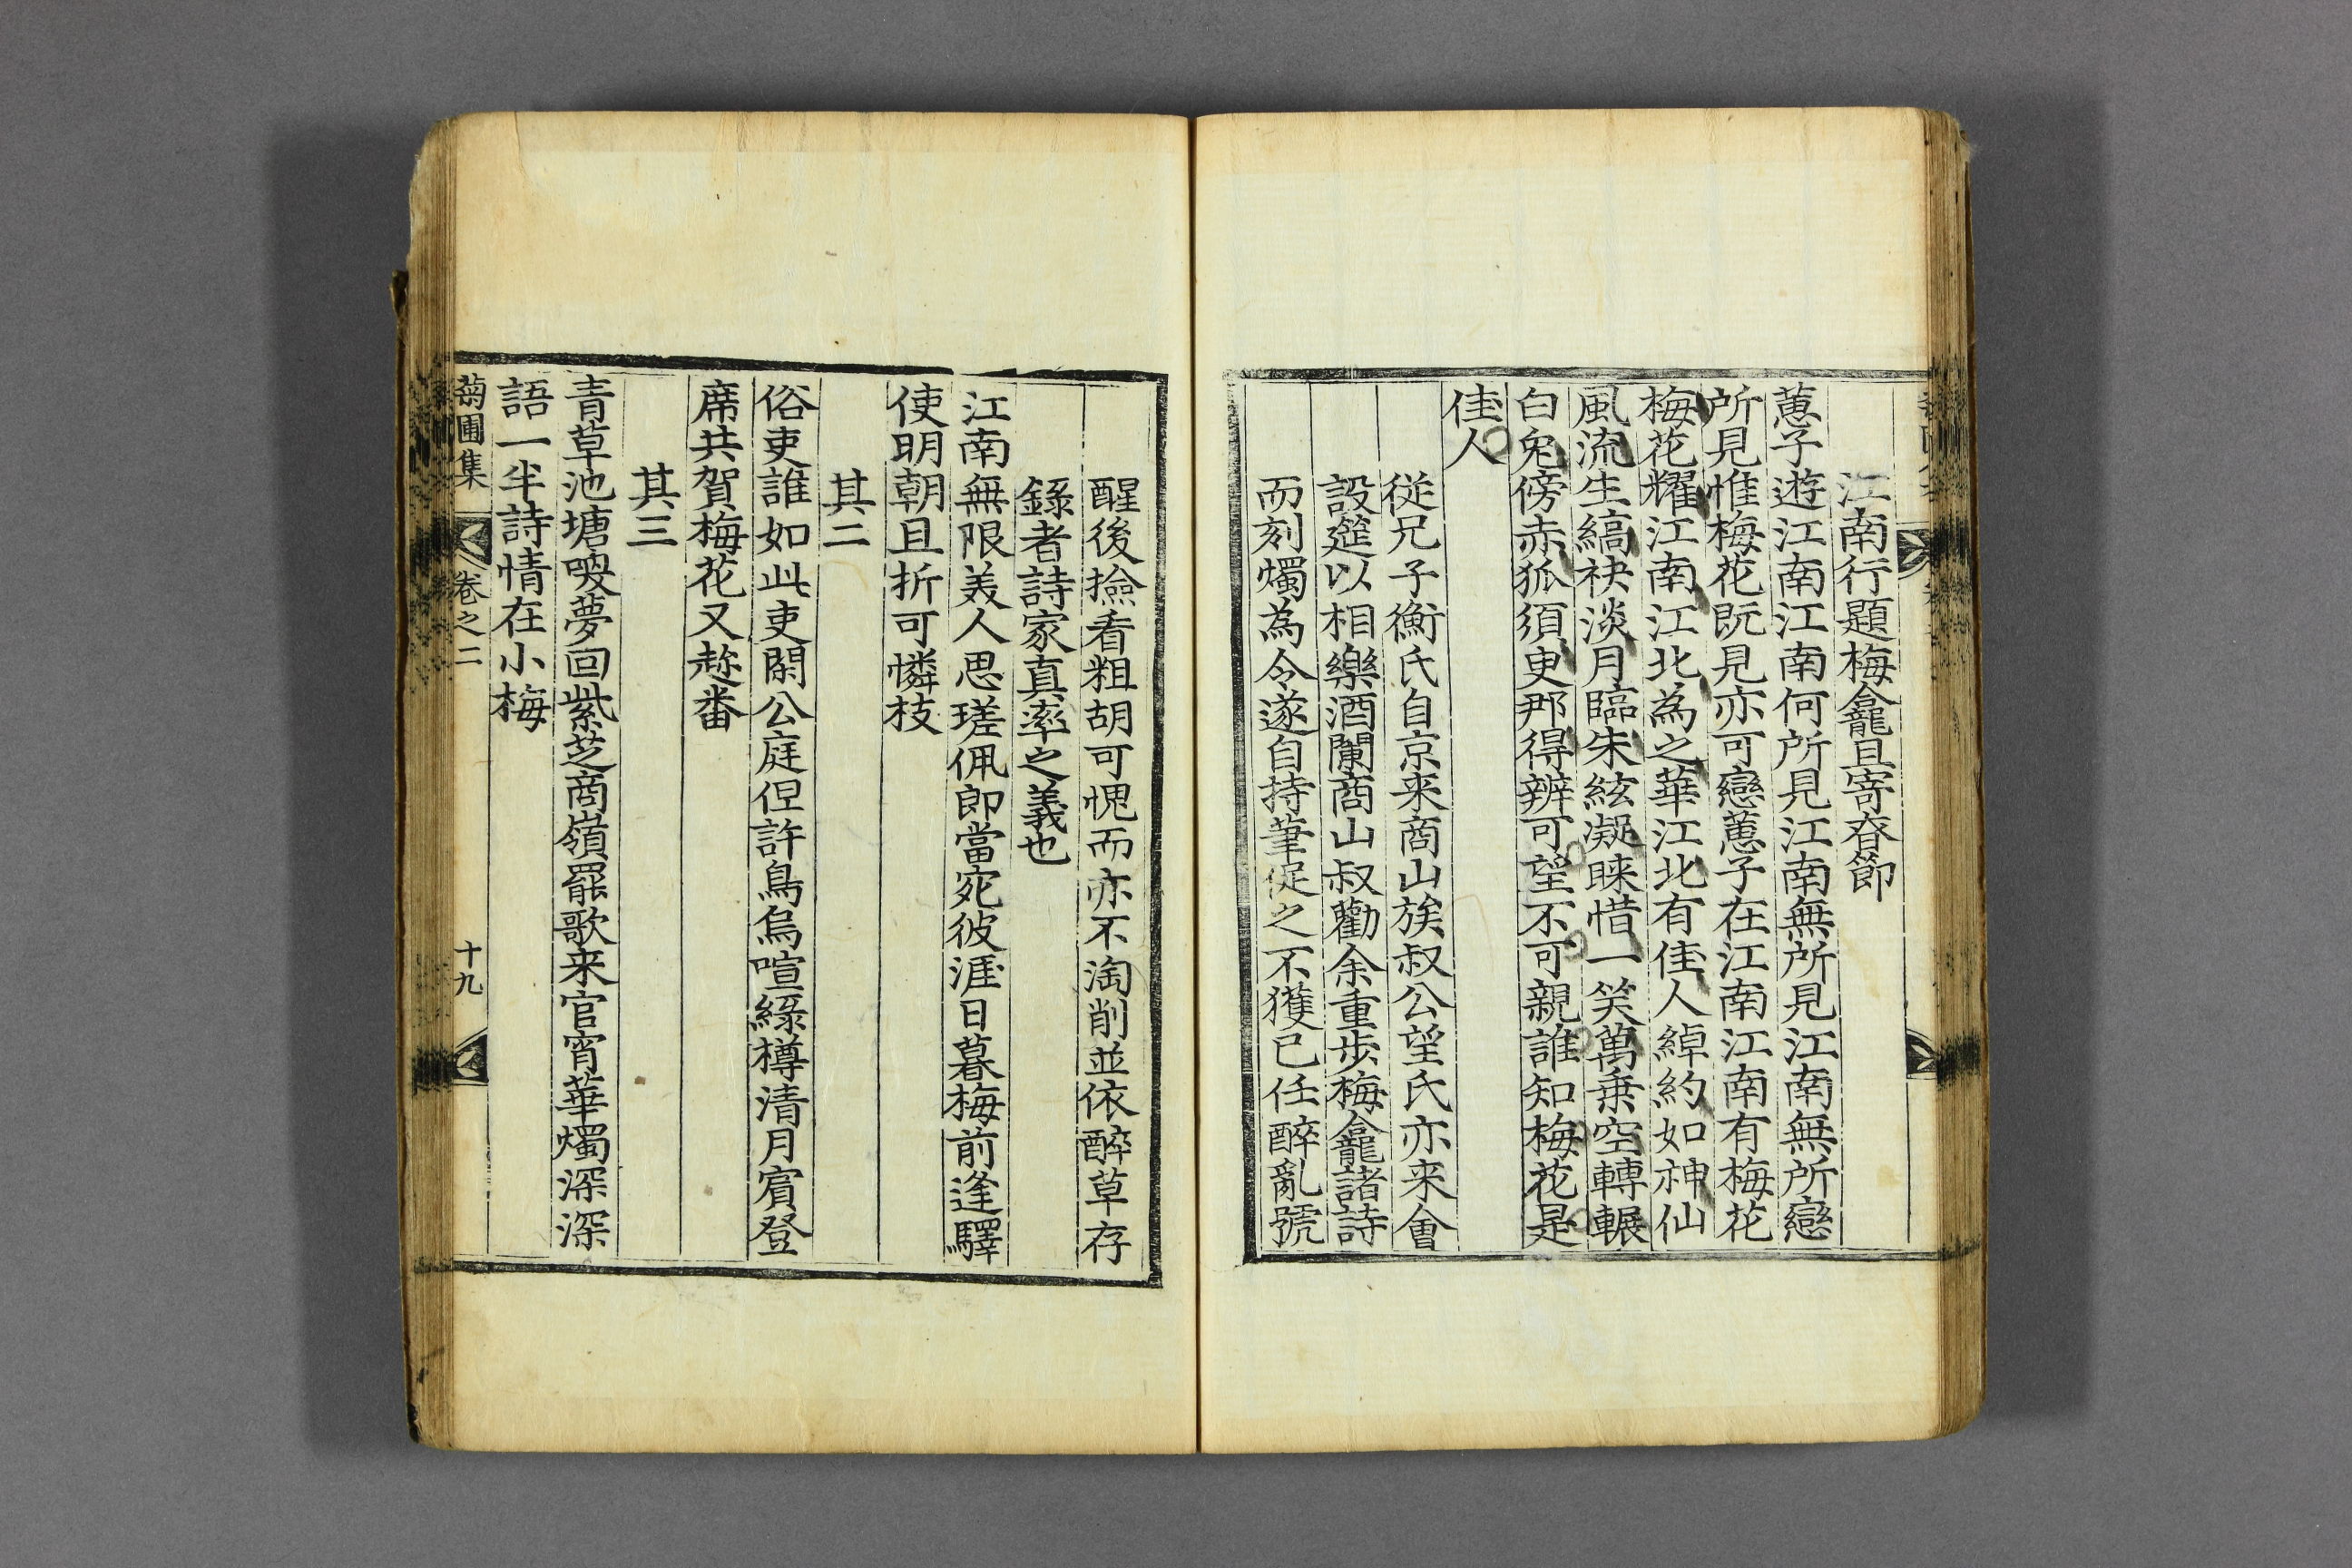 江南行題梅龕且寄春節
蕙子遊江南江南何所見江南無所見江南無所戀
所見惟梅花既見亦可戀蕙子在江南江南有梅花
梅花耀江南江北為之華江北有佳人綽約如神仙
風流生縞袂淡月臨朱絃凝睐惜一笑萬乗空轉輾
白兔傍赤狐須叓那得辨可望不可親誰知梅花是
佳人
従兄子衡氏自京来商山族叔公望氏亦来會
設筵以相樂酒闌商山叔勸余重步梅龕諸詩
而刻燭為令遂自持筆促之不獲已任醉亂號
醒後撿看粗胡可愧而亦不淘削並依醉草存
錄者詩家真率之義也
江南無限美人思瑳佩即當宛彼涯日暮梅前逢驛
使明朝且折可憐枝
其二
俗吏誰如此吏閑公庭但許鳥烏喧綠樽清月賔登
席共賀梅花又趂番
其三
青草池塘喚夢回紫芝商嶺罷歌来官宵華燭深深
語一半詩情在小梅
菊圃集
卷之二
十九